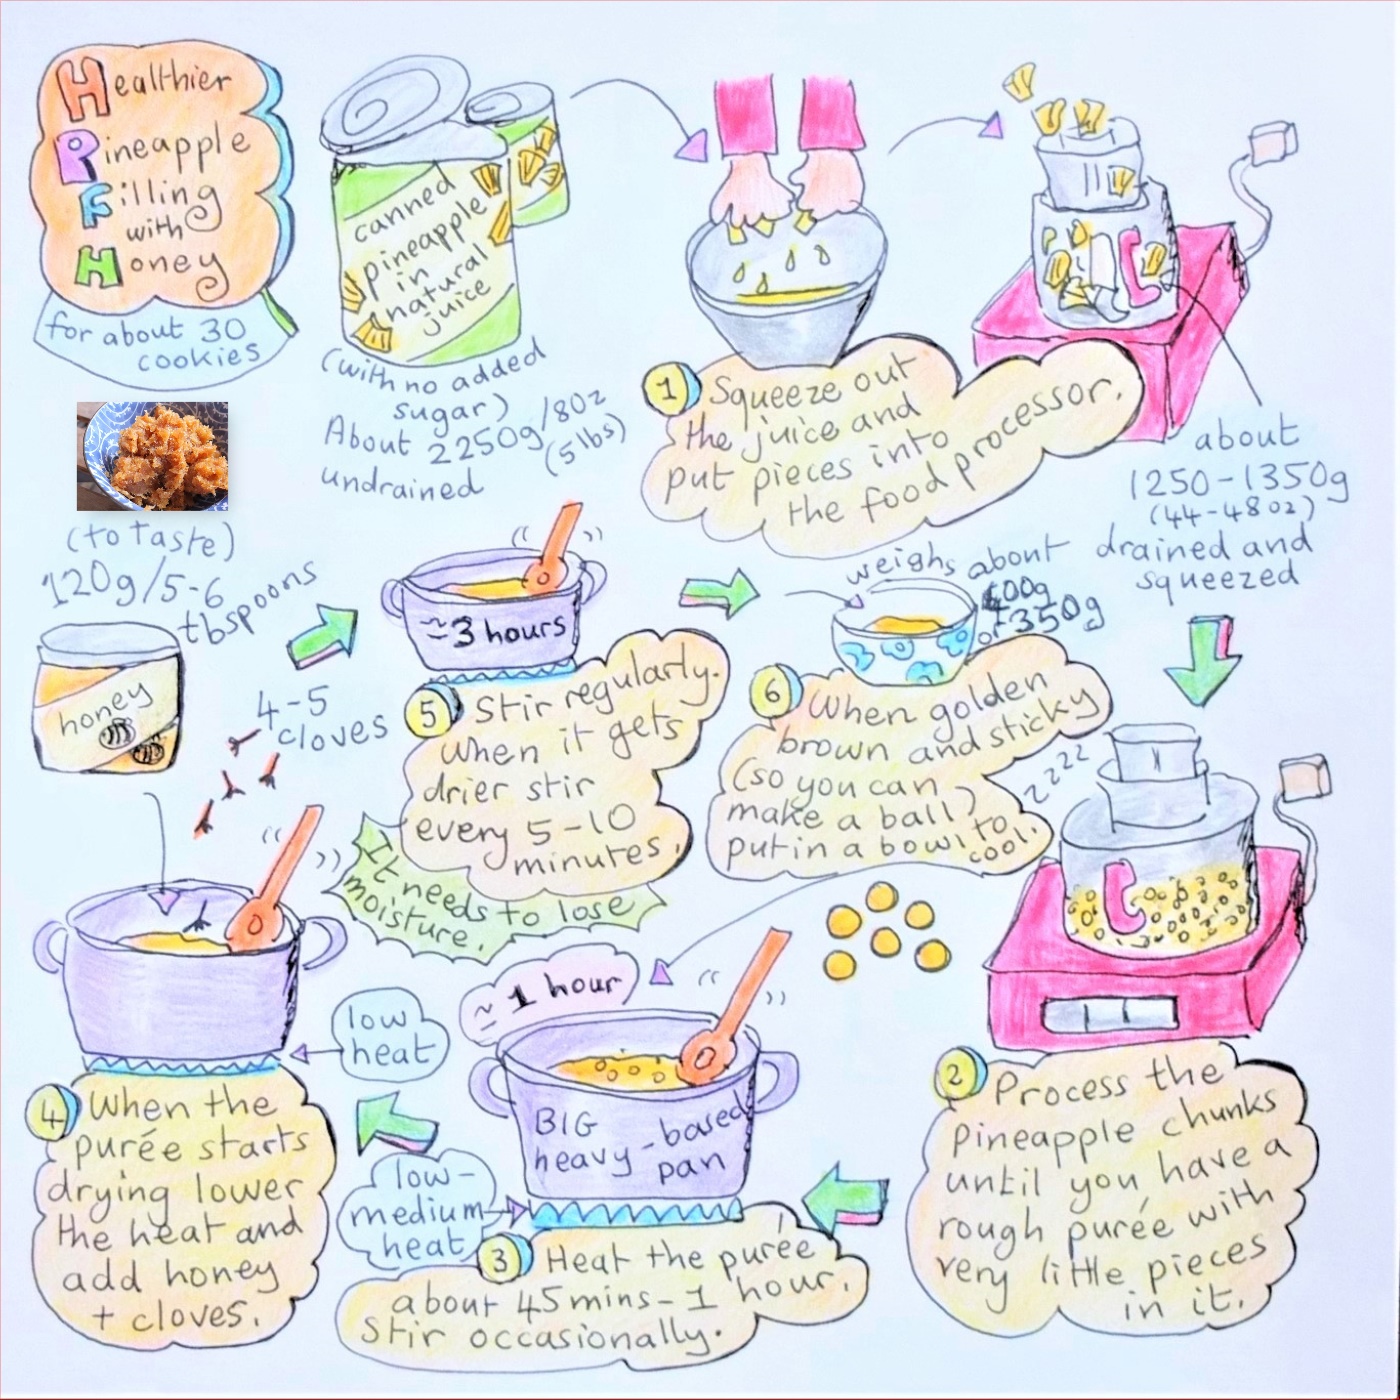 Healthier
Pineapple
Filling
with
Honey
for about 30
cookies
canned
pineapple
in
natural
juice
(with no added
sugar)
About 2250g/80z
(5lbs)
undrained
1 Squeeze out
the juice and
put pieces into
the food processor.
about
1250-1350g
(44-48oz)
drained and
squeezed
2 Process the
pineapple chunks
until you have a
rough purée with
very little pieces
in it.
BIG
heavy-based
pan
≃ 1 hour
low-
medium
heat
3 Heat the purée
about 45mins-1 hour.
Stir occasionally.
(to taste)
120g/5-6
tbspoons
honey
4-5
cloves
low
heat
4 When the
purée starts
drying lower
the heat and
add honey
+ cloves.
≃3 hours
5 Stir regularly.
When it gets
drier stir
every 5-10
minutes.
It needs to lose
moisture.
weighs about
400g
or 1350g
6 When golden
brown and sticky
(so you can
make a ball)
put in a bowl to
cool.
zzzz